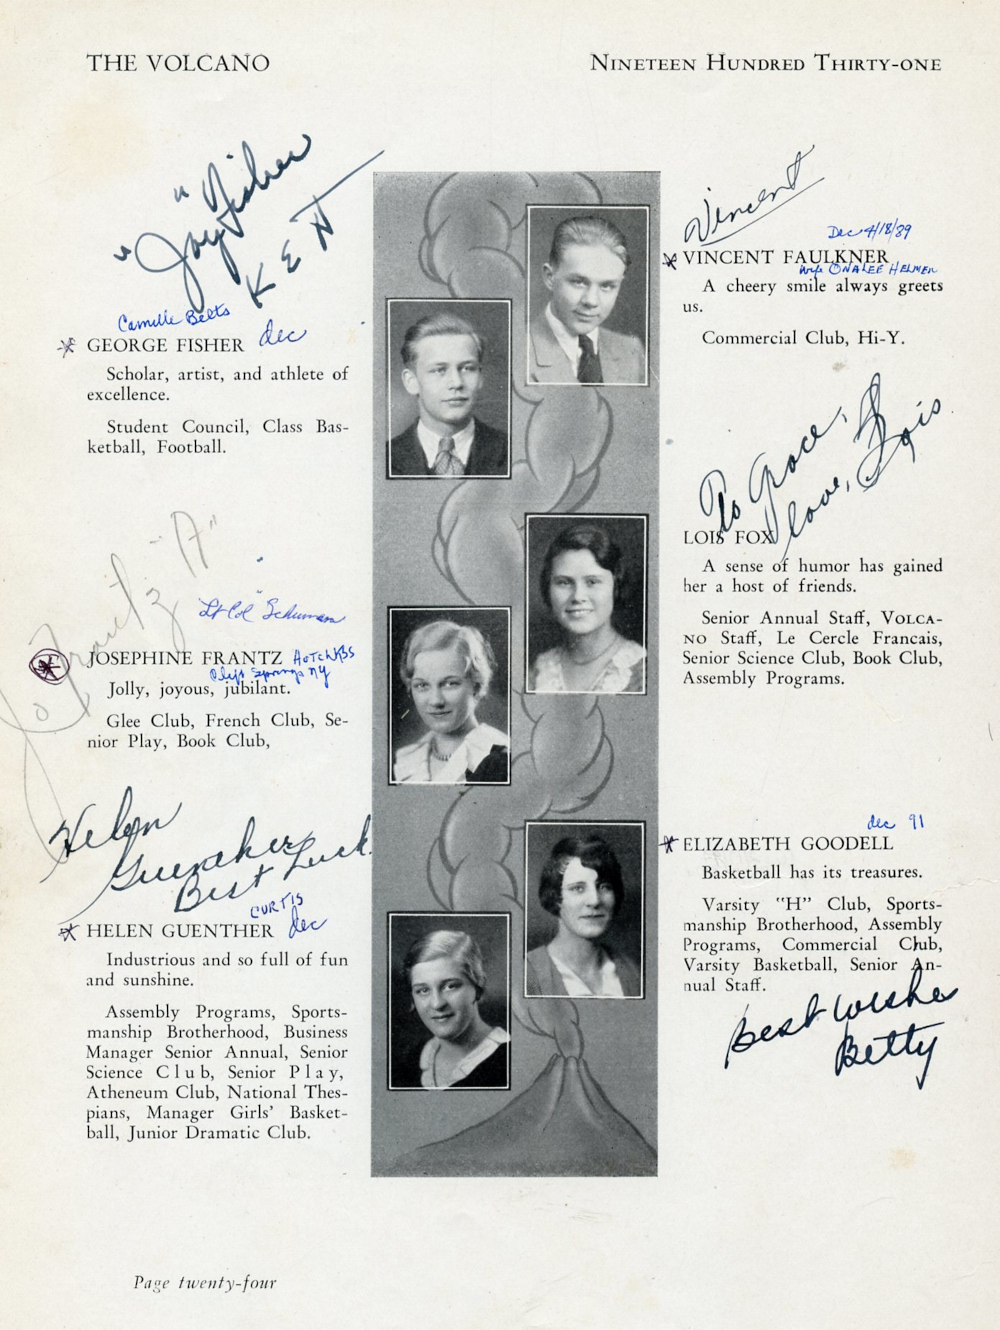 THE VOLCANO
NINETEEN HUNDRED THIRTY-ONE
"Joy" Fisher
K E H
Camille Belts
GEORGE FISHER dec
Scholar, artist, and athlete of
excellence.
Student Council, Class Bas-
ketball, Football.
Jo Frantz "A"
"Lt Col" Schuman
JOSEPHINE FRANTZ HOTCHKSS
Springs NY
Jolly, joyous, jubilant.
Glee Club, French Club, Se-
nior Play, Book Club,
Helen
Guenther
Best Luck
CURTIS
HELEN GUENTHER dec
Industrious and so full of fun
and sunshine.
Assembly Programs, Sports-
manship Brotherhood, Business
Manager Senior Annual, Senior
Science Club, Senior Play,
Atheneum Club, National Thes-
pians, Manager Girls' Basket-
ball, Junior Dramatic Club.
Vincent
Dec 4/18/89
VINCENT FAULKNER
wife ONALEE HELMER
A cheery smile always greets
us.
Commercial Club, Hi-Y.
To Grace,
love, Lois
LOIS FOX
A sense of humor has gained
her a host of friends.
Senior Annual Staff, VOLCA-
NO Staff, Le Cercle Francais,
Senior Science Club, Book Club,
Assembly Programs.
dec 91
ELIZABETH GOODELL
Basketball has its treasures.
Varsity "H" Club, Sports-
manship Brotherhood, Assembly
Programs, Commercial Club,
Varsity Basketball, Senior An-
nual Staff.
Best wishes
Betty
Page twenty-four